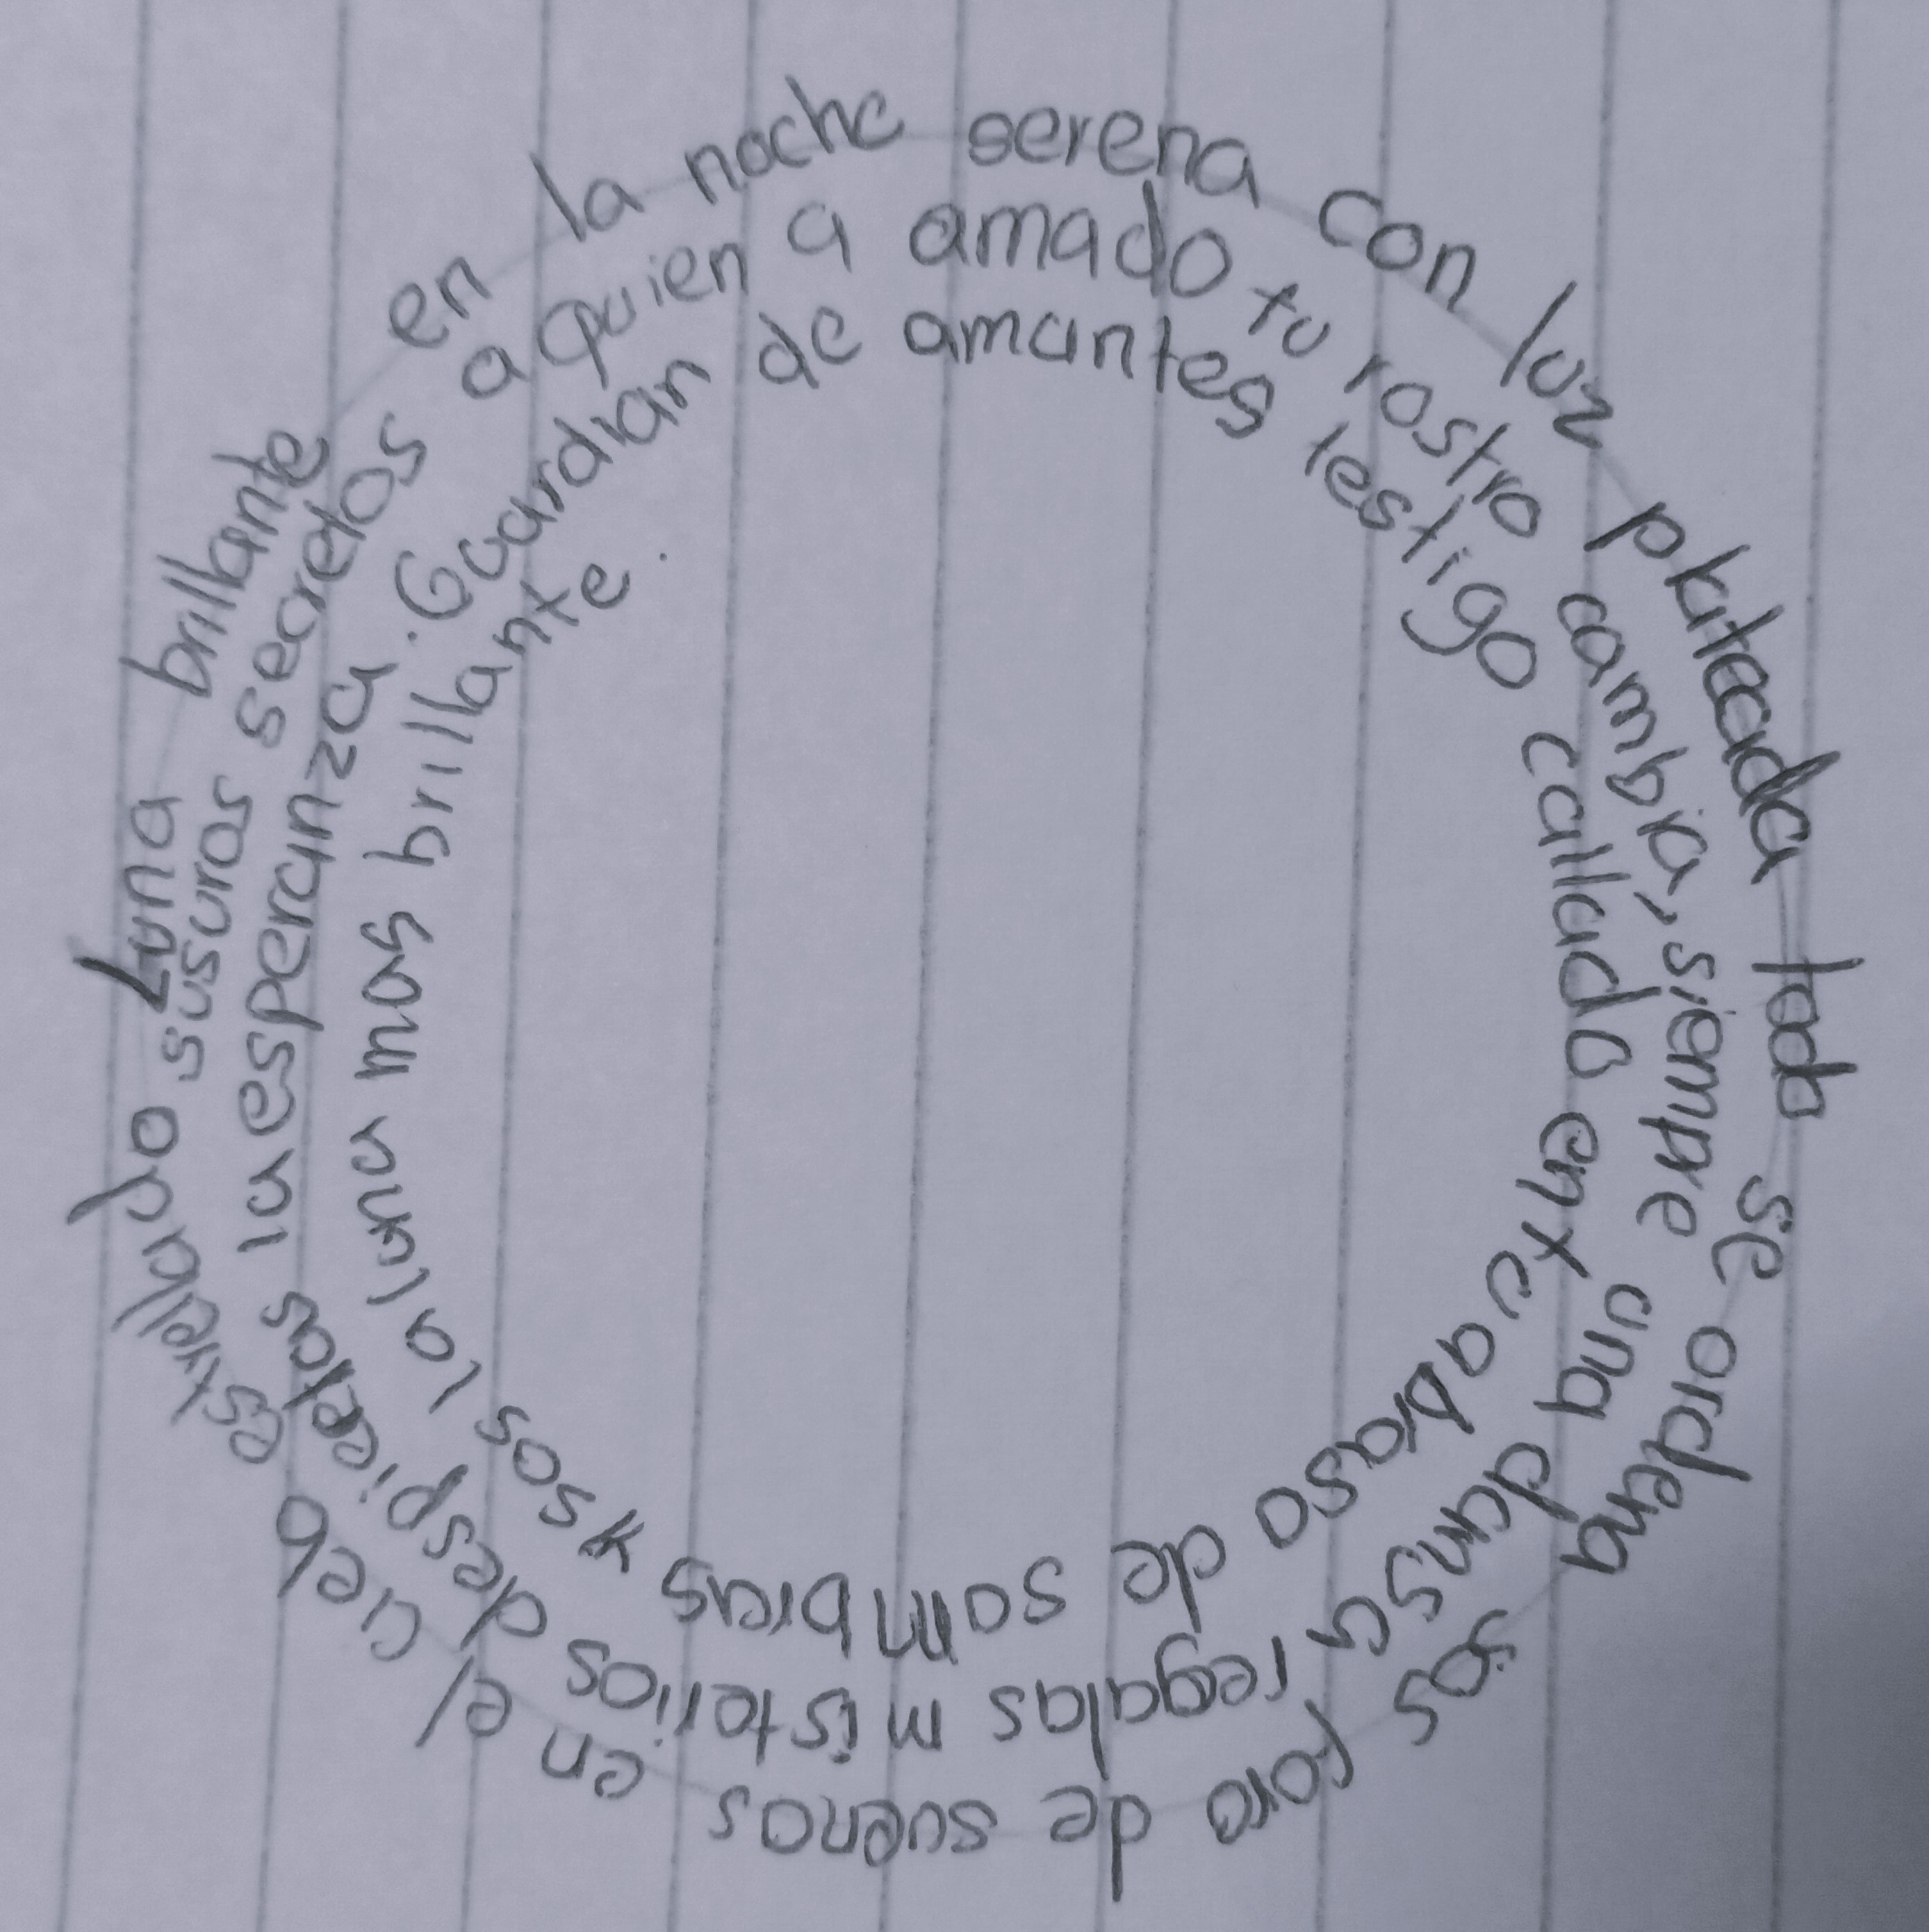 Luna brillante en la noche serena con luz plateada todo se ordena sos foro de sueños en el cielo estrellado
susuros secretos a quien a amado tu rostro cambia, siempre una dansa regalas misterios despiertas la esperanza.
Guardian de amantes testigo callado en tu abraso de sombras sos la luna mas brillante.